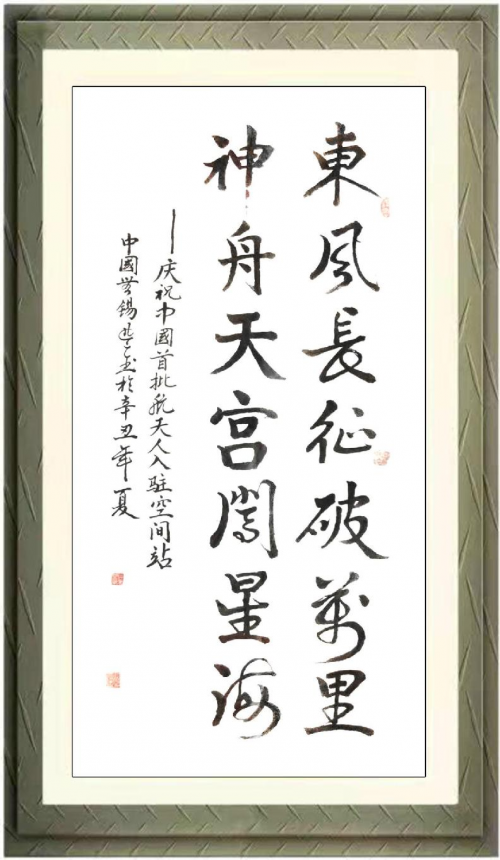 東風長征破萬里
神舟天宫闖星海
——庆祝中國首批航天人入驻空间站
中國無锡 於辛丑年夏